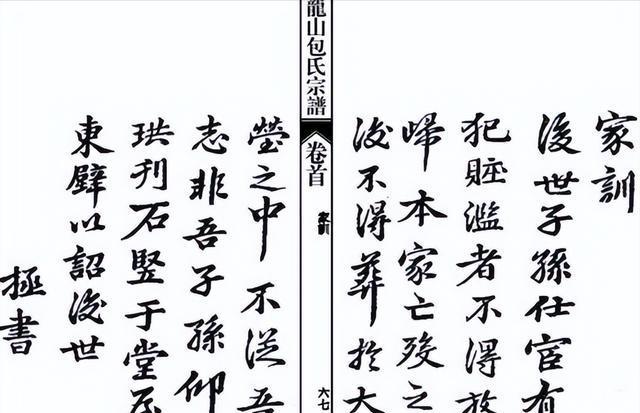 家訓
後世子孫仕宦有
犯賍濫者不得放
歸本家亡歿之
後不得葬於大
龍山包氏宗譜
卷首
家訓
六七
塋之中不從吾
志非吾子孫仰
珙刊石竪于堂屋
東壁以詔後世
拯書